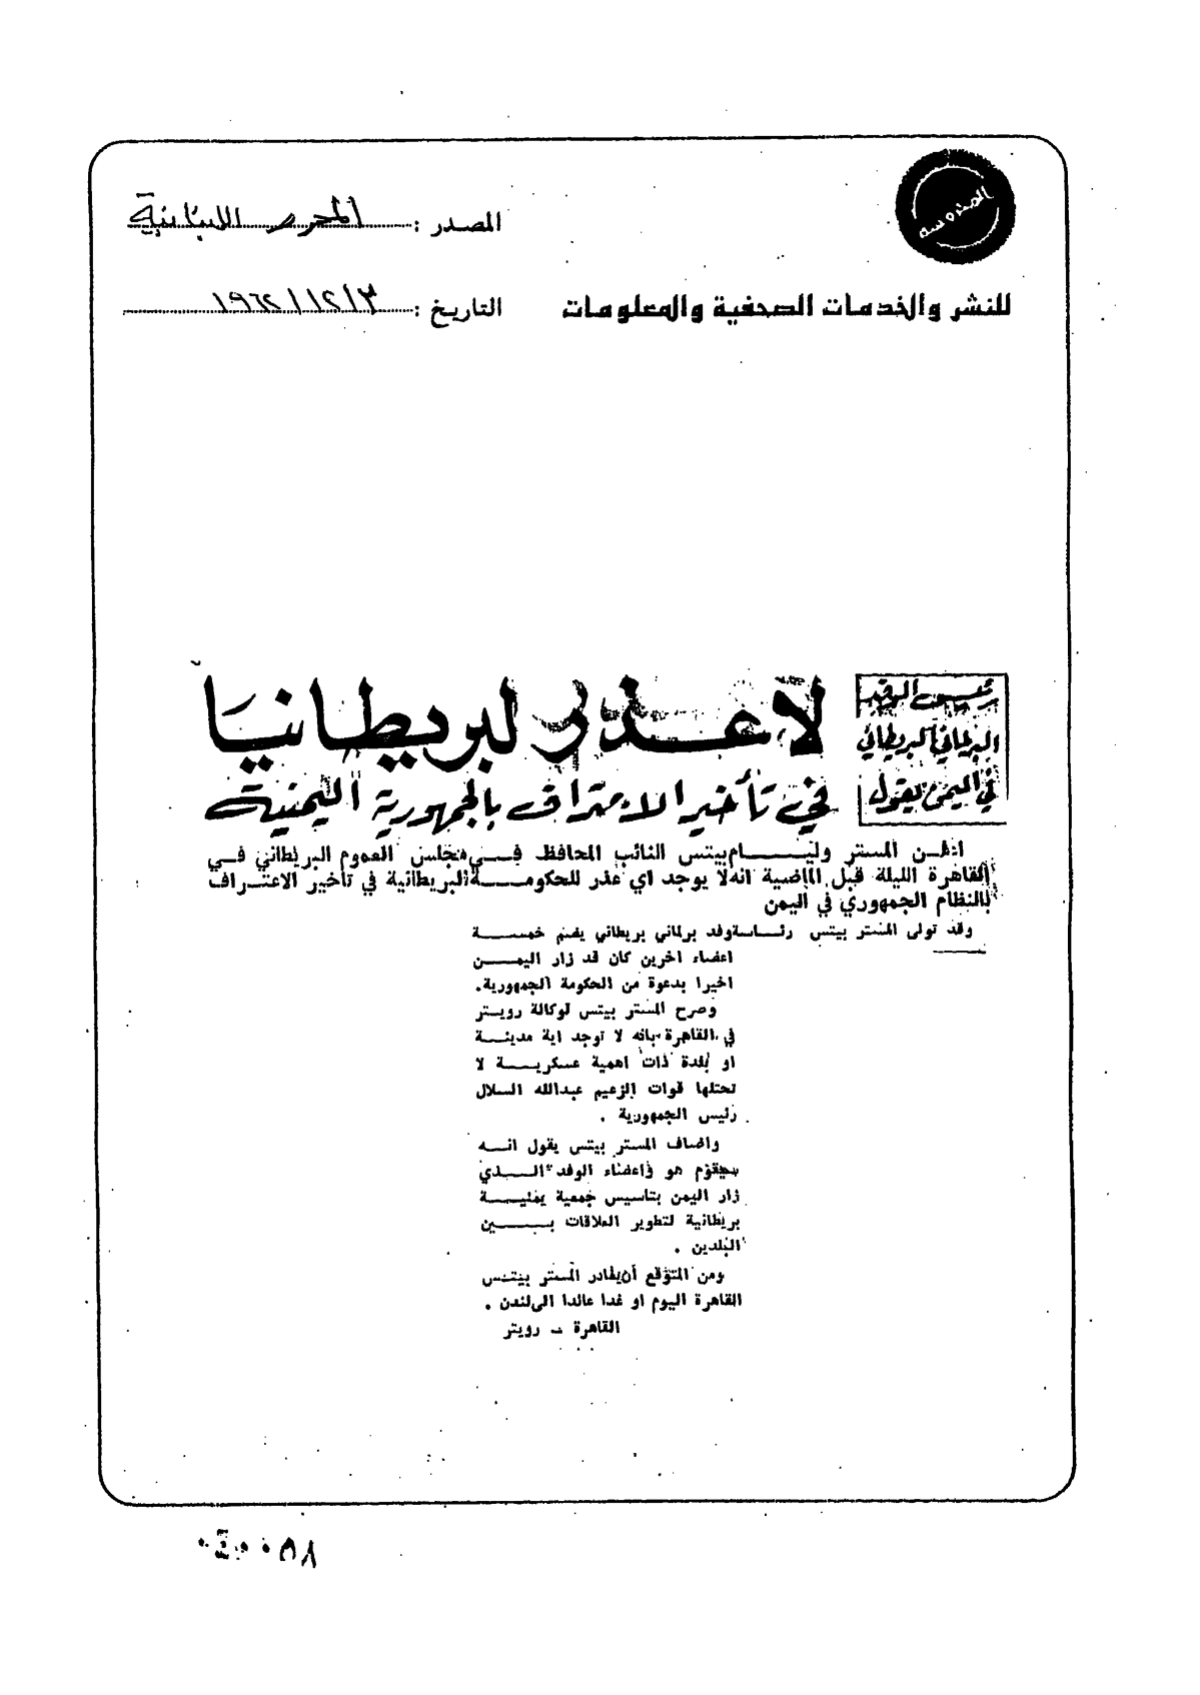 المحروسة
المصدر : المحرر اللبنانية
للنشر والخدمات الصحفية والمعلومات
التاريخ : ١٩٦٢/١٢/٣
رئيس الوفد
البرلماني البريطاني
في اليمن يقول
لا عذر لبريطانيا
في تأخير الاعتراف بالجمهورية اليمنية
اعلن المستر وليــــام بيتس النائب المحافظ فــي مجلس العموم البريطاني فــي
القاهرة الليلة قبل الماضية انه لا يوجد اي عذر للحكومــة البريطانية في تأخير الاعتــراف
بالنظام الجمهوري في اليمن
وقد تولى المستر بيتس رئــاسة وفد برلماني بريطاني يضم خمســة
اعضاء اخرين كان قد زار اليمــن
اخيرا بدعوة من الحكومة الجمهورية.
وصرح المستر بيتس لوكالة رويــتر
في القاهرة بانه لا توجد اية مدينــة
او بلدة ذات اهمية عسكريــة لا
تحتلها قوات الزعيم عبدالله السلال
رئيس الجمهورية .
واضاف المستر بيتس يقول انــه
سيقوم هو واعضاء الوفد الــذي
زار اليمن بتاسيس جمعية يمنيــة
بريطانية لتطوير العلاقات بــــين
البلدين .
ومن المتوقع أن يغادر المستر بيتــس
القاهرة اليوم او غدا عائدا الى لندن .
القاهرة ــ رويتر